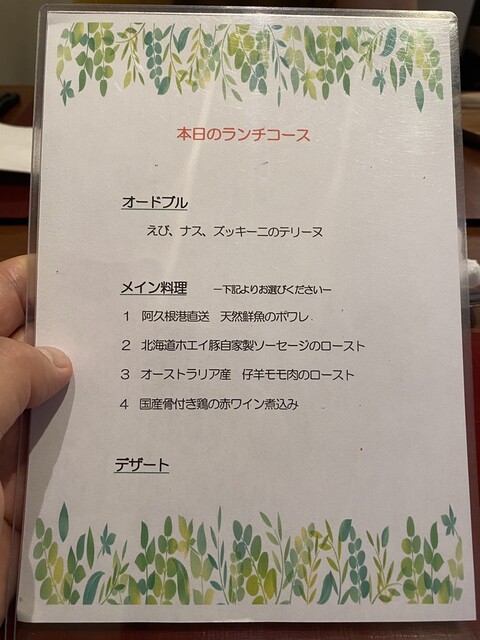 本日のランチコース
オードブル
えび、ナス、ズッキーニのテリーヌ
メイン料理 ー下記よりお選びくださいー
1 阿久根港直送 天然鮮魚のポワレ
2 北海道ホエイ豚自家製ソーセージのロースト
3 オーストラリア産 仔羊モモ肉のロースト
4 国産骨付き鶏の赤ワイン煮込み
デザート